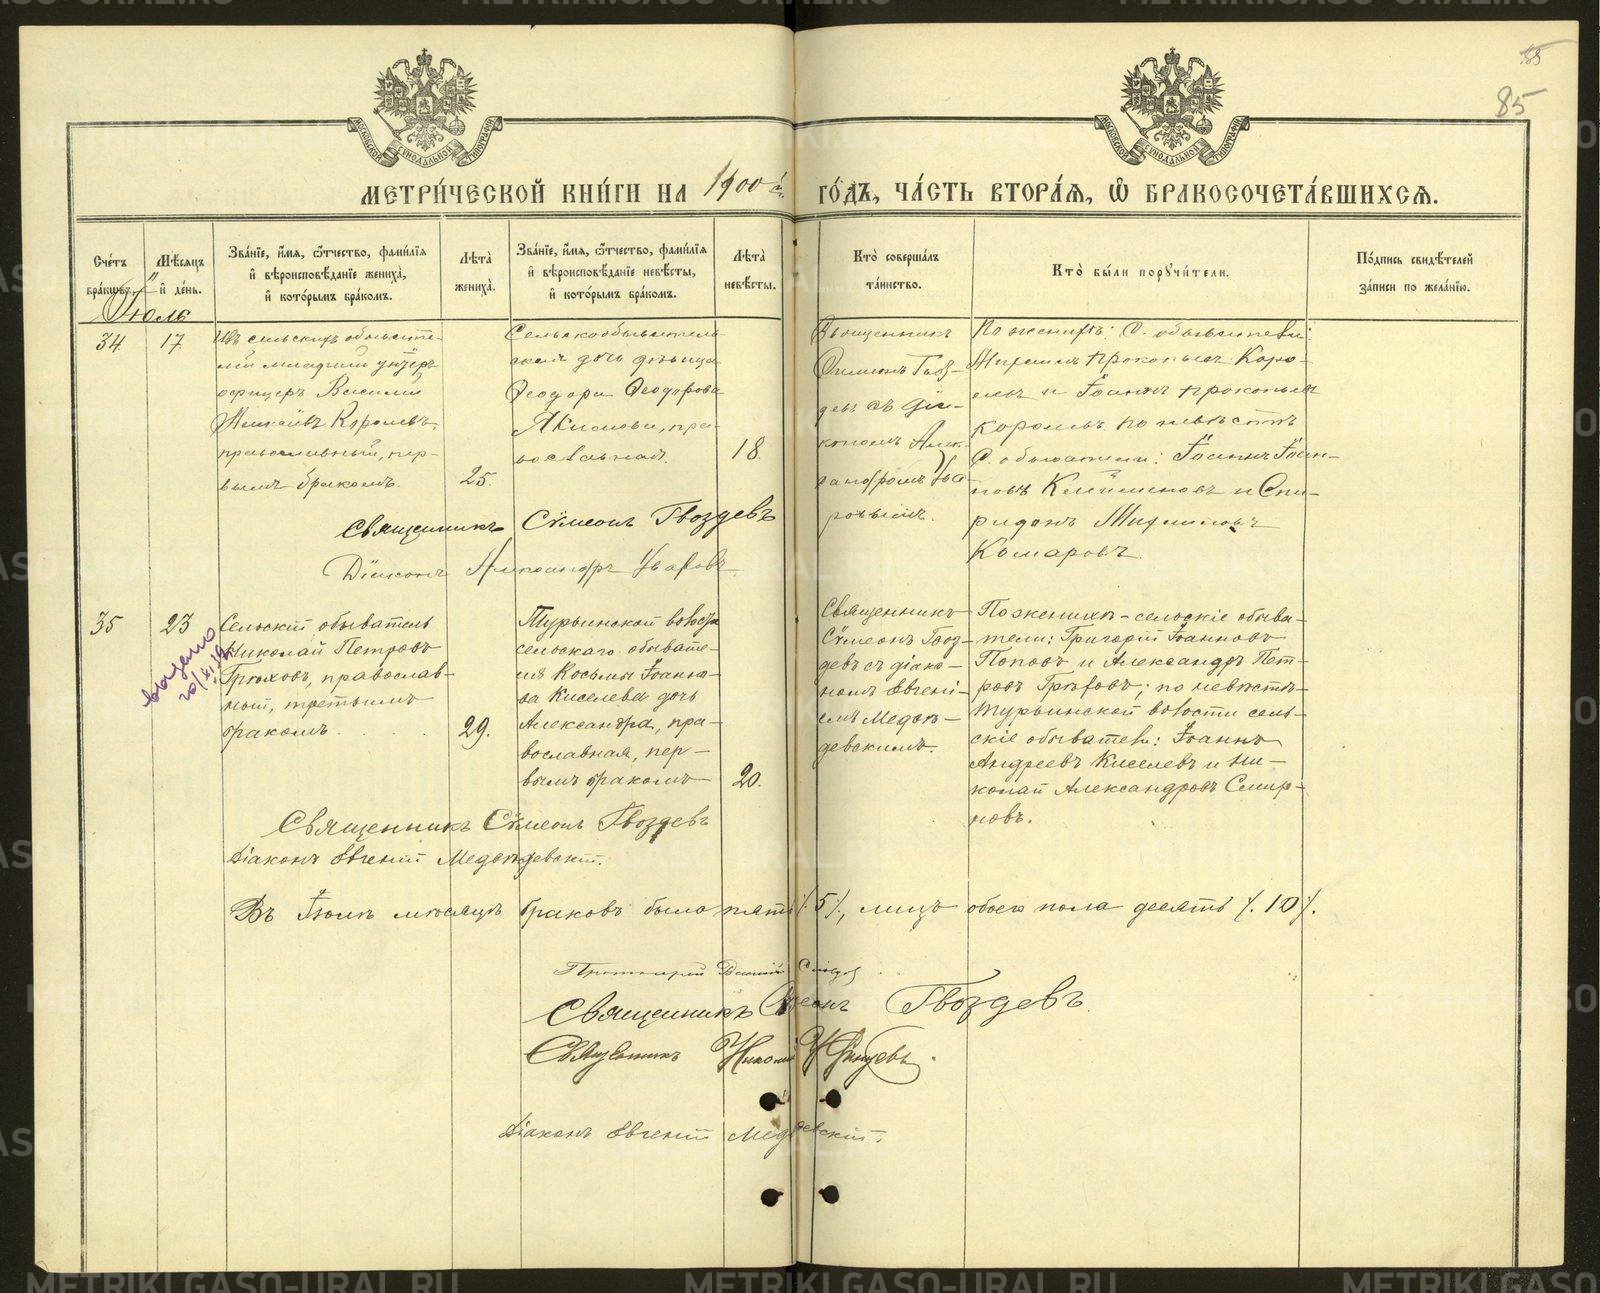 85
МЕТРИ́ЧЕСКОЙ КНИ́ГИ НА 1900 й ГО́ДЪ, ЧА́СТЬ ВТОРА́Я, Ѡ БРАКОСОЧЕТА́ВШИХСЯ.
Сче́тъ бра́кѡвъ.
Мѣ́сяцъ и҆ де́нь.
Зва́нїе, и҆́мя, ѻ҆́тчество, фами́лїя
и҆ вѣроисповѣ́данїе жениха̀,
и҆ кото́рымъ бра́комъ.
Лѣта̀
жениха̀.
Зва́нїе, и҆́мя, ѻ҆́тчество, фами́лїя
и҆ вѣроисповѣ́данїе невѣ́сты,
и҆ кото́рымъ бра́комъ.
Лѣта̀
невѣ́сты.
Кто̀ соверша́лъ
та́инство.
Кто̀ бы́ли порꙋчи́тели.
По́дпись свидѣ́телей
за́писи по жела́нїю.
Іюль
34.
17
Изъ сельскихъ обывате-
лей младшій унтеръ
офицеръ Василій
Королевъ,
православный, пер-
вымъ бракомъ.
25.
Сельскообывательс-
кая дочь дѣвица
Ѳеодора Ѳеодорова
Якимова, пра-
вославная.
18.
Священникъ
Симеонъ Гвоз-
девъ съ діа-
кономъ Алек-
сандромъ Ува-
ровымъ.
По женихѣ: С. обыватели:
Михаилъ Прокопьевъ Коро-
левъ и Іоаннъ Прокопьевъ
Королевъ. По невѣстѣ
С. обыватели: Іоаннъ Іоан-
новъ и Спи-
ридонъ Михаиловъ
Комаровъ.
Священникъ Сѵмеонъ Гвоздевъ
Діаконъ Александръ Уваровъ.
35
23
выдано
20/XI
Сельскій обыватель
Николай Петровъ
Грѣховъ, православ-
ный, третьимъ
бракомъ.
29.
Турьинской волости
сельскаго обывате-
ля Косьмы Іоанно-
ва Киселева дочь
Александра, пра-
вославная, пер-
вымъ бракомъ
20.
Священникъ
Сѵмеонъ Гвоз-
девъ съ діако-
номъ Евгені-
емъ Медвѣ-
девскимъ.
По женихѣ - сельскіе обыва-
тели: Григорій Іоанновъ
Поповъ и Александръ Пет-
ровъ Грѣховъ; по невѣстѣ-
Турьинской волости сель-
скіе обыватели: Іоаннъ
Андреевъ Киселевъ и Ни-
колай Александровъ Смир-
новъ.
Священникъ Сѵмеонъ Гвоздевъ
Діаконъ Евгеній Медвѣдевскій.
Въ Іюлѣ мѣсяцѣ браковъ было пять /.5/., лицъ обоего пола десять /.10/.
Протоіерей
Священникъ Сѵмеонъ Гвоздевъ.
Священникъ Николай
Діаконъ Евгеній Медвѣдевскій.
METRIKI.GASO-URAL.RU